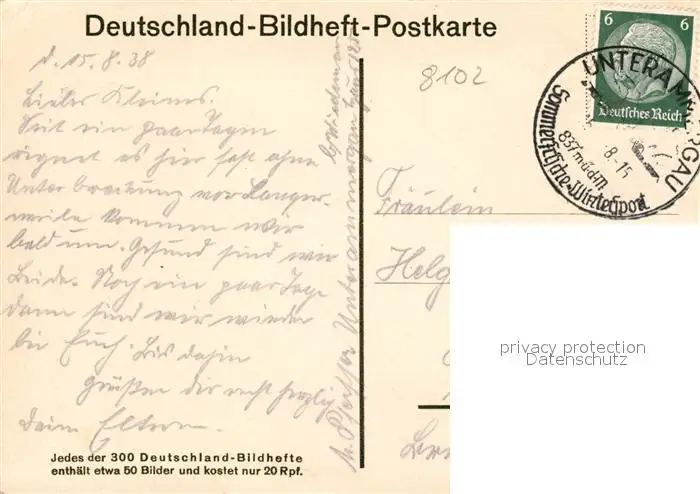 Deutschland-Bildheft-Postkarte
d. 15.8.38
Liebes Kleines.
Seit ein paar Tagen
regnet es hier fast ohne
Unterbrechung vor Langer-
weile kommen wir
bald um. Gesund sind wir
Beide. Noch ein paar Tage
dann sind wir wieder
bei Euch. Bis dahin
grüßen dir recht herzlich
Deine Eltern.
Unterammergau
Jedes der 300 Deutschland-Bildhefte
enthält etwa 50 Bilder und kostet nur 20 Rpf.
8102
6 6
Deutsches Reich
UNTERAMMERGAU
837 m ü.d.M
Sommerfrische-Wintersport
Fräulein
Helg
privacy protection
Datenschutz